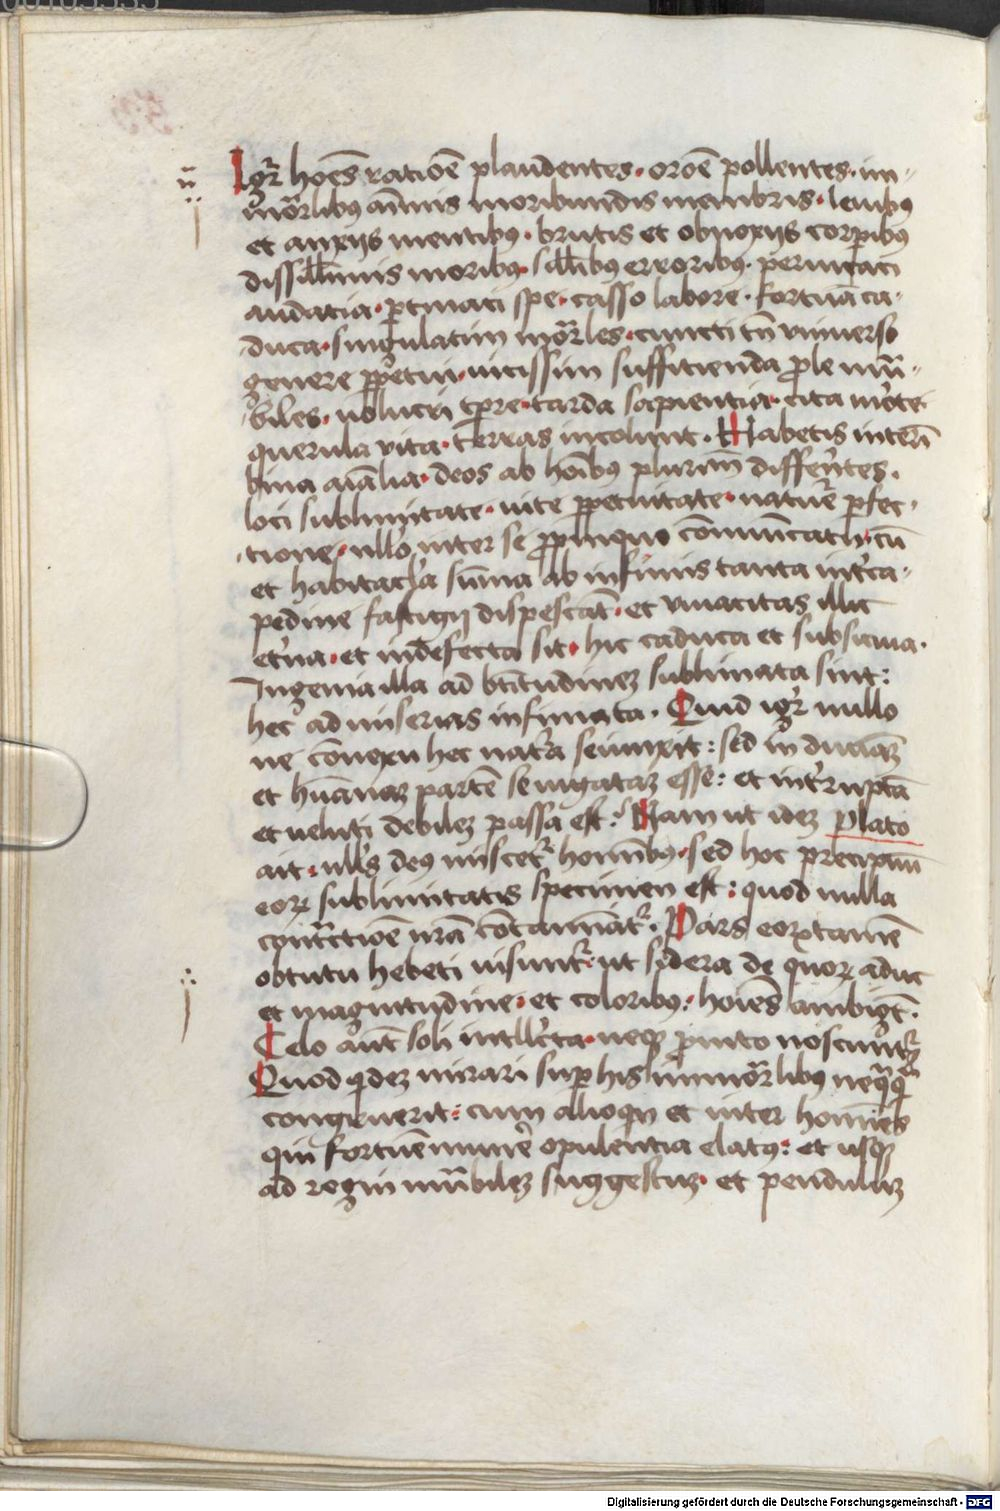 Igr̄ hoēs ratiōe plaudentes· orōe pollentes· im-
mōrlibus aīmis moribundis menbris· leuibus
et anxijs mentibus· brutis et obnoxijs corpibus
dissillimis moribus· sillibus erroribus· peruicaci
audatia· ptinaci spe· casso labore· fortūa ca-
duca· singulatim mōrles· cuncti tn̄ vniuerso
genere ppetui· uicissim suffitienda ple mū-
biles· uolucri tpre· tarda sapientia· cita morte·
querula vita· terras incolunt· Habetis interī
bina aīalia· deos ab hoībus plurimū differentes·
loci sublimitate· uite ppetuitate· nature pfec-
tione· nullo inter se ppinquo cōmunicatu· cū
et habitacla sūma ab infimis tanta interca-
pedine fastigij dispescat· et viuacitas illic
eterna· et indefecta sit· hic caduca et subsiciua·
Ingenia illa ad btitudinem sublimata sint:
hec ad miserias infimata· Quid igr̄ nullo
ne cōnexu hec natura seiunxit: sed in diuinam
et hūanam partē se iugatam esse: et interruptā
et ueluti debilem passa est? Nam ut idem Plato
ait· nullus deus miscetr hominibus· sed hoc precipuū
eorum sublimitatis specimen est: quod nulla
contrectiōe nrā cōtaminatr· Pars eorum tamē
obtutu hebeti uisuntr· ut sydera de quorum adhuc
et magnitudine· et coloribus: hoies ambigūt·
Celo aūt soli intllecta· neque prompto noscuntr
Quod quidem mirari super his immōrlibus nequaquam
congruerit: cum alioquin et inter homines
qui fortune munere opulentia elatus: et usque
ad regni mūbilem suggestum· et pendulum
Digitalisierung gefördert durch die Deutsche Forschungsgemeinschaft - DFG